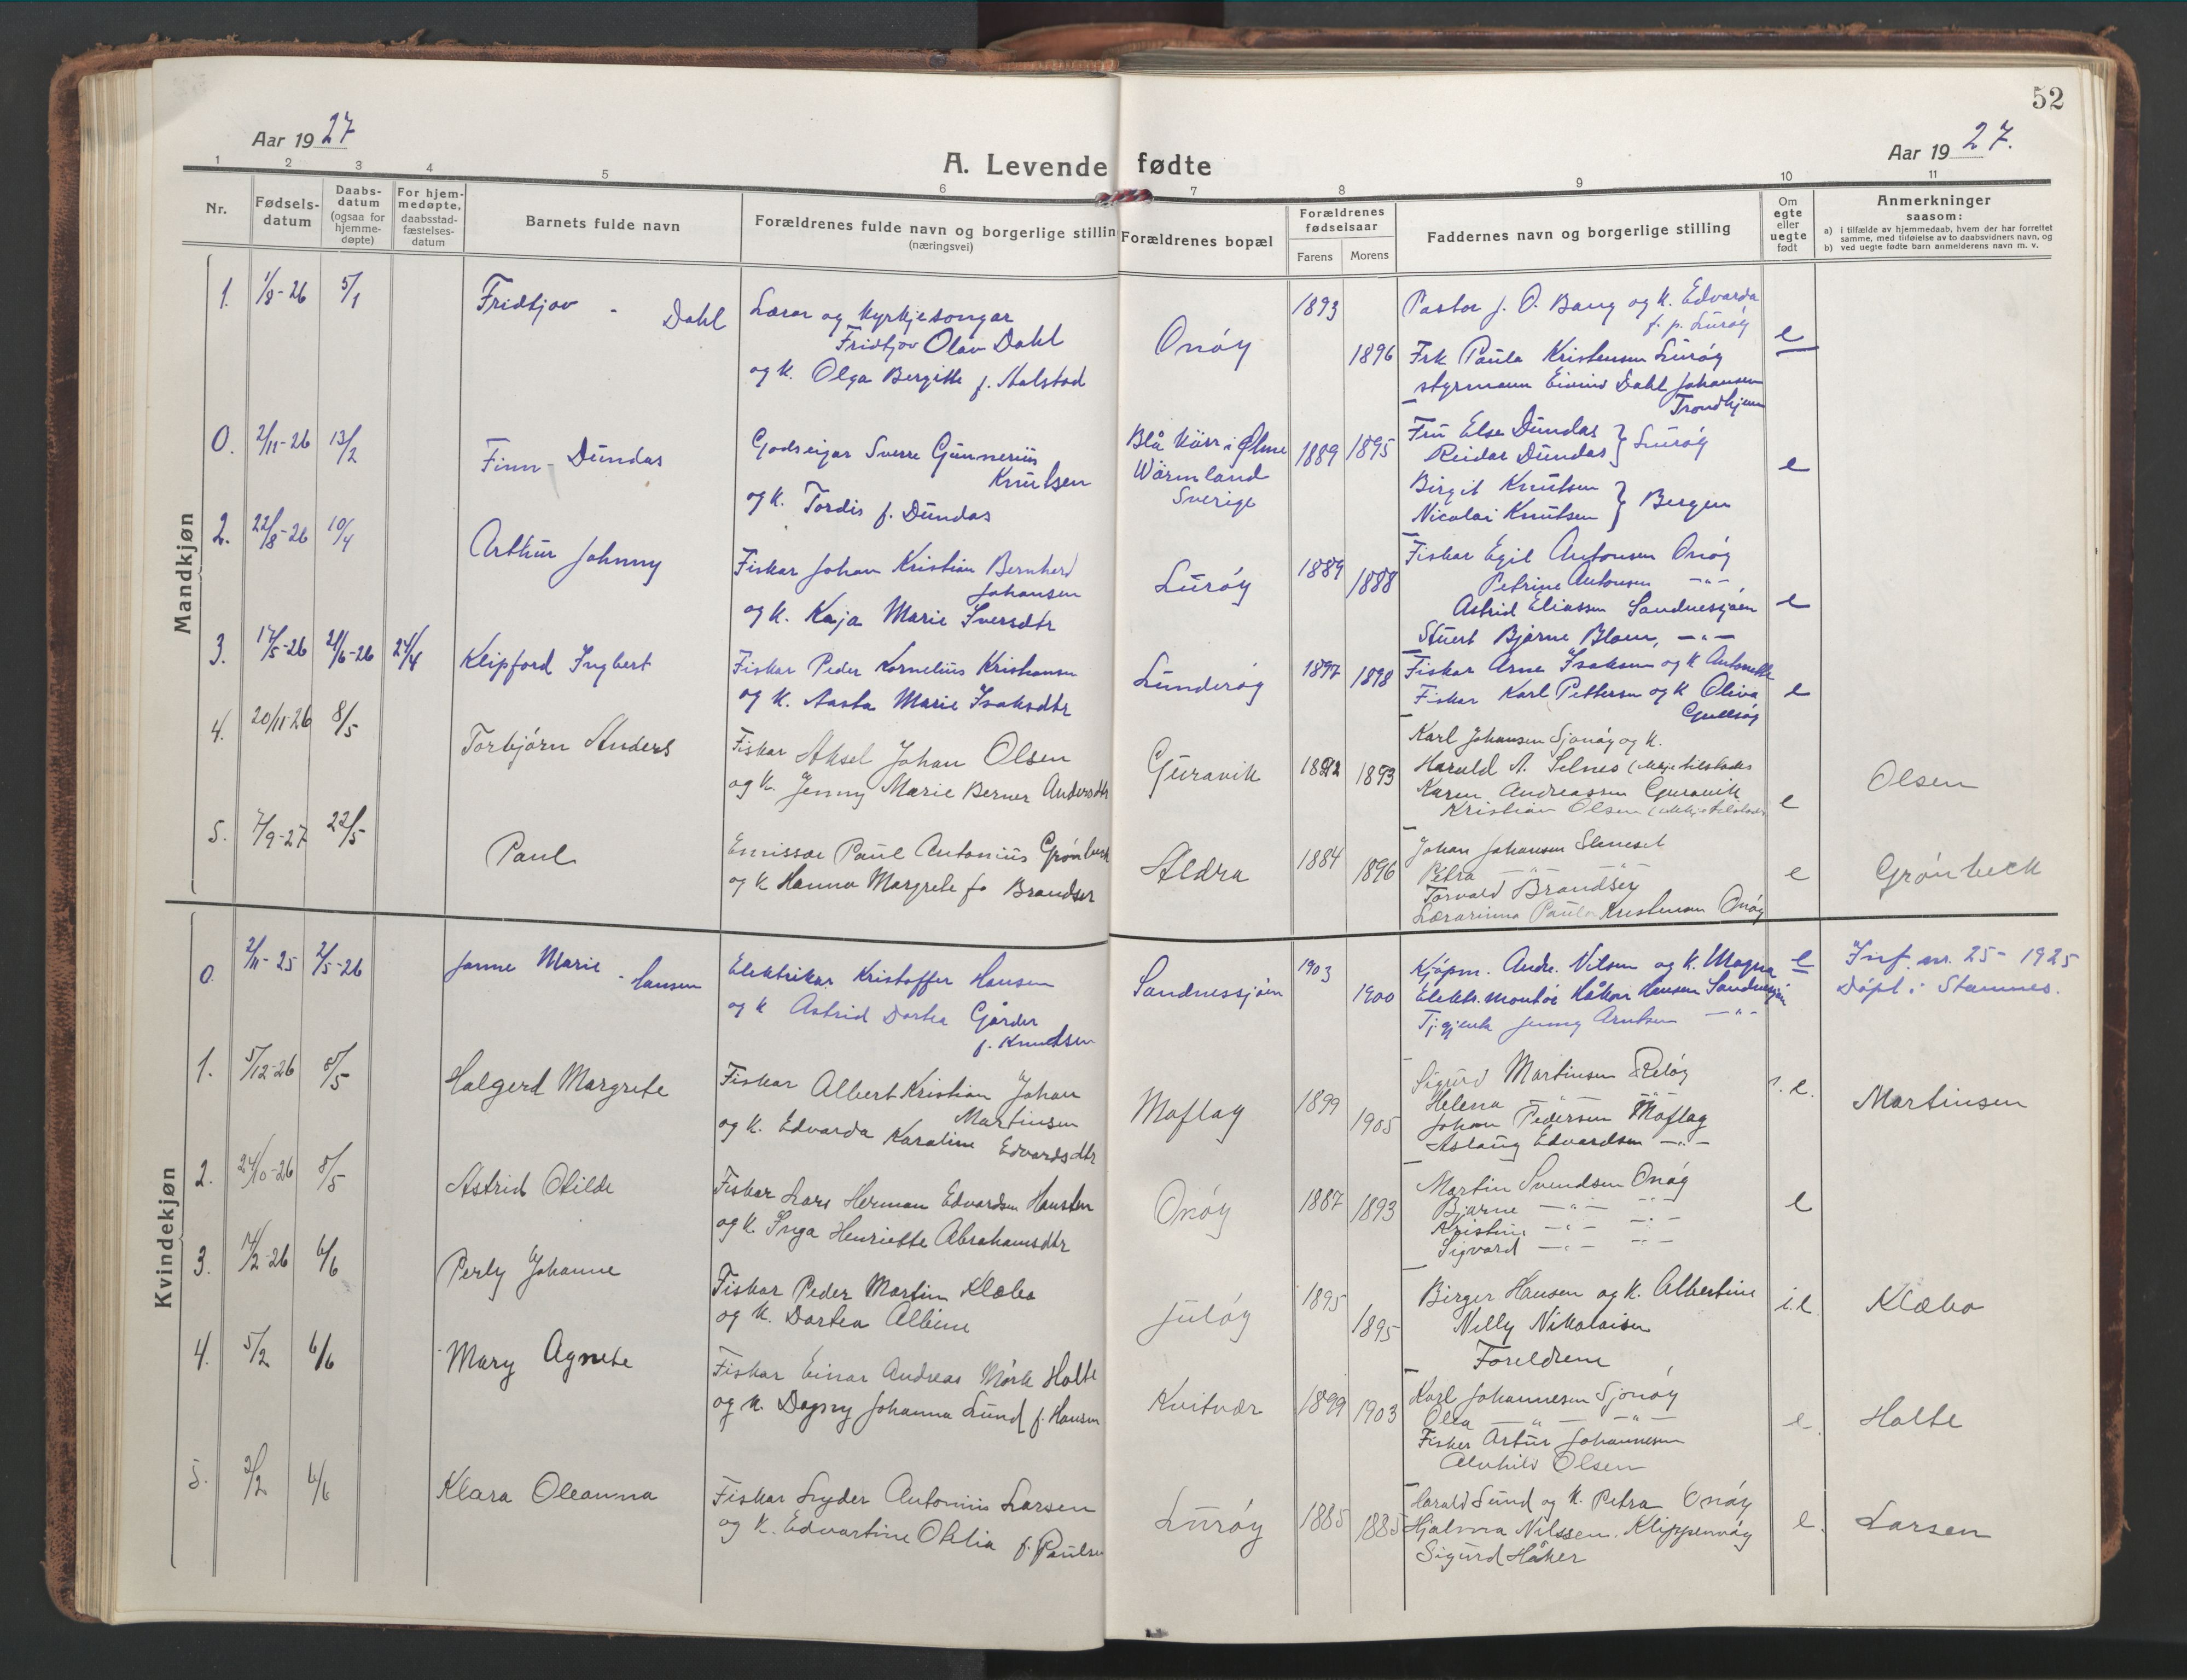 52
Aar 1927
Aar 1927.
A. Levende fødte
1 2 3 4 5 6 7 8 9 10 11
Nr.
Fødselsdatum
Daabsdatum (ogsaa for hjemmedøpte)
For hjemmedøpte, daabsstadfæstelsesdatum
Barnets fulde navn
Forældrenes fulde navn og borgerlige stillin
(næringsvei)
Forældrenes bopæl
Forældrenes fødselsaar
Farens Morens
Faddernes navn og borgerlige stilling
Om egte eller uegte født
Anmerkninger
saasom:
a) i tilfælde av hjemmedaab, hvem der har forrettet samme, med tilføielse av to daabsvidners navn, og
b) ved uegte fødte barn anmelderens navn m. v.
Mandkjøn
1. 1/8-26 5/1 Fridtjov - Dahl
Lærar og kyrkjesongar
Fridtjov Olav Dahl
og k. Olga Bergitte f. Aalstad
Onøy 1893 1896
Pastor J. O. Bang og k. Edvarda
f. p. Lurøy
Frk Paula Kristensen Lurøy
styrmann Eivind Dahl Johansen
Trondhjem
e
0. 2/11-26 13/2 Finn - Dundas
Godseigar Sverre Gunnerius
Knutsen
og k. Tordis f. Dundas
Blå Kärr i Ølme
Wärmland
Sverige
1889 1895
Fru Else Dundas
Reidar Dundas } Lurøy
Birgit Knutsen
Nicolai Knutsen } Bergen
e
2. 22/8-26 10/4 Arthur Johnny
Fiskar Johan Kristian Bernhard
Johansen
og k. Kaja Marie Iversdtr
Lurøy 1889 1888
Fiskar Egil Antonsen Onøy
Petrine Antonsen -"-
Astrid Eliassen Sandnessjøen
Stuert Bjarne Blom, -"-
e
3. 17/5-26 21/6-26 24/4 Klipford Ingbert
Fiskar Peder Kornelius Kristiansen
og k. Aasta Marie Isaksdtr
Lunderøy 1897 1898
Fiskar Arne Isaksen og k Antonette
Fiskar Karl Pettersen og k Oliva
e
4. 20/11-26 8/5 Torbjørn Anders
Fiskar Aksel Johan Olsen
og k. Jenny Marie Berner Andersdtr
Guravik 1892 1893
Karl Johansen Sjonøy og k.
Harald A. Selnes (ikkje tilstades
Karen Andreassen Guravik
Kristian Olsen (ikkje tilstades
e
Olsen
5. 7/9-27 22/5 Paul
Emissær Paul Antonius Grønbeck
og k Hanna Margrete fø Brandser
Aldra 1884 1896
Johan Johansen Slaneset
Petra -"-
Torvald Brandsøy
Lærarinna Paula Kristensen Onøy
e
Grønbeck
Kvindekjøn
0. 2/11-25 2/5-26 Janne Marie - Hansen
Elektriker Kristoffer Hansen
og k Astrid Dortea Gårder
f. Knudsen
Sandnessjøen 1903 1900
Kjøpm. Andr. Nilsen og k. Magna
Elektr. montør Håkon Hansen Sandnessjøen
Tj.gjente Jenny Arntsen -"-
e
Innf. nr. 25 - 1925
Døpt i Stamnes.
1. 5/12-26 8/5 Halgerd Margrete
Fiskar Albert Kristian Johan
Martinsen
og k. Edvarda Karoline Edvardsdtr
Moflag 1899 1905
Sigurd Martinsen Reløy
Helena -"- -"-
Johan Pedersen Moflag
Aslaug Edvardsen -"-
e.
Martinsen
2. 24/10-26 8/5 Astrid Otilde
Fiskar Lars Herman Edvardsen Hansten
og k. Inga Henriette Abrahamsdtr
Onøy 1887 1893
Martin Svendsen Onøy
Bjarne -"- -"-
Kristine -"- -"-
Sigvard -"- -"-
e
3. 14/2-26 6/6 Perly Johanne
Fiskar Peder Martin Klæbo
og k. Dortea Albine
Juløy 1895 1895
Birger Hansen og k. Albertine
Nelly Nikolaisen
Foreldrene
i.e.
Klæbo
4. 5/2 6/6 Mary Agnete
Fiskar Einar Andreas Mørk Holte
og k. Dagny Johanna Lund f. Hansen
Kvitvær 1899 1903
Karl Johannesen Sjonøy
Olea -"- -"-
Fisker Artur Johannesen
Alvhild Olsen
e.
Holte
5. 2/2 6/6 Klara Oleanna
Fiskar Lyder Antonius Larsen
og k. Edvartine Otelia f. Paulsen
Lurøy 1885 1885
Harald Lund og k. Petra Onøy
Hjalma Nilssen. Klippenvåg
Sigurd Håker
e.
Larsen